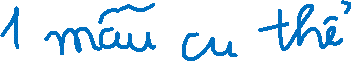 1 mẫu cu thể